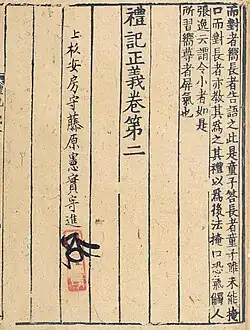 而對者嚮長者告語之此是童子答長者童子雖未能掩
口而對長者亦教其爲之其禮以爲後法掩口恐氣觸人
張逸云謂令小者如是
所習嚮尊者屏氣也
禮記正義卷第二
上杉安房守藤原憲實寄進